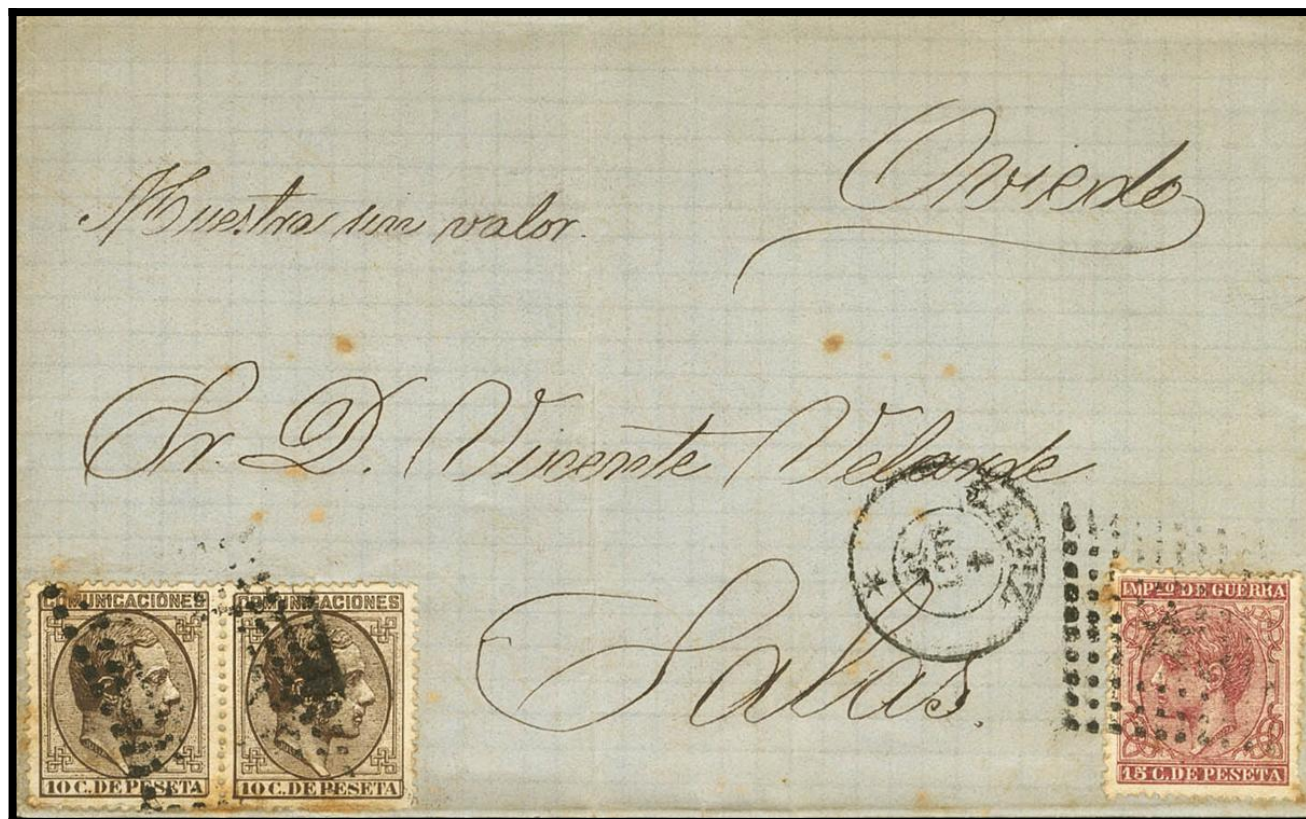 Oviedo
Muestra sin valor.
Sr. D. Vicente Velarde
Salas.
COMUNICACIONES
10 C. DE PESETA
COMUNICACIONES
10 C. DE PESETA
IMP.TO DE GUERRA
15 C. DE PESETA